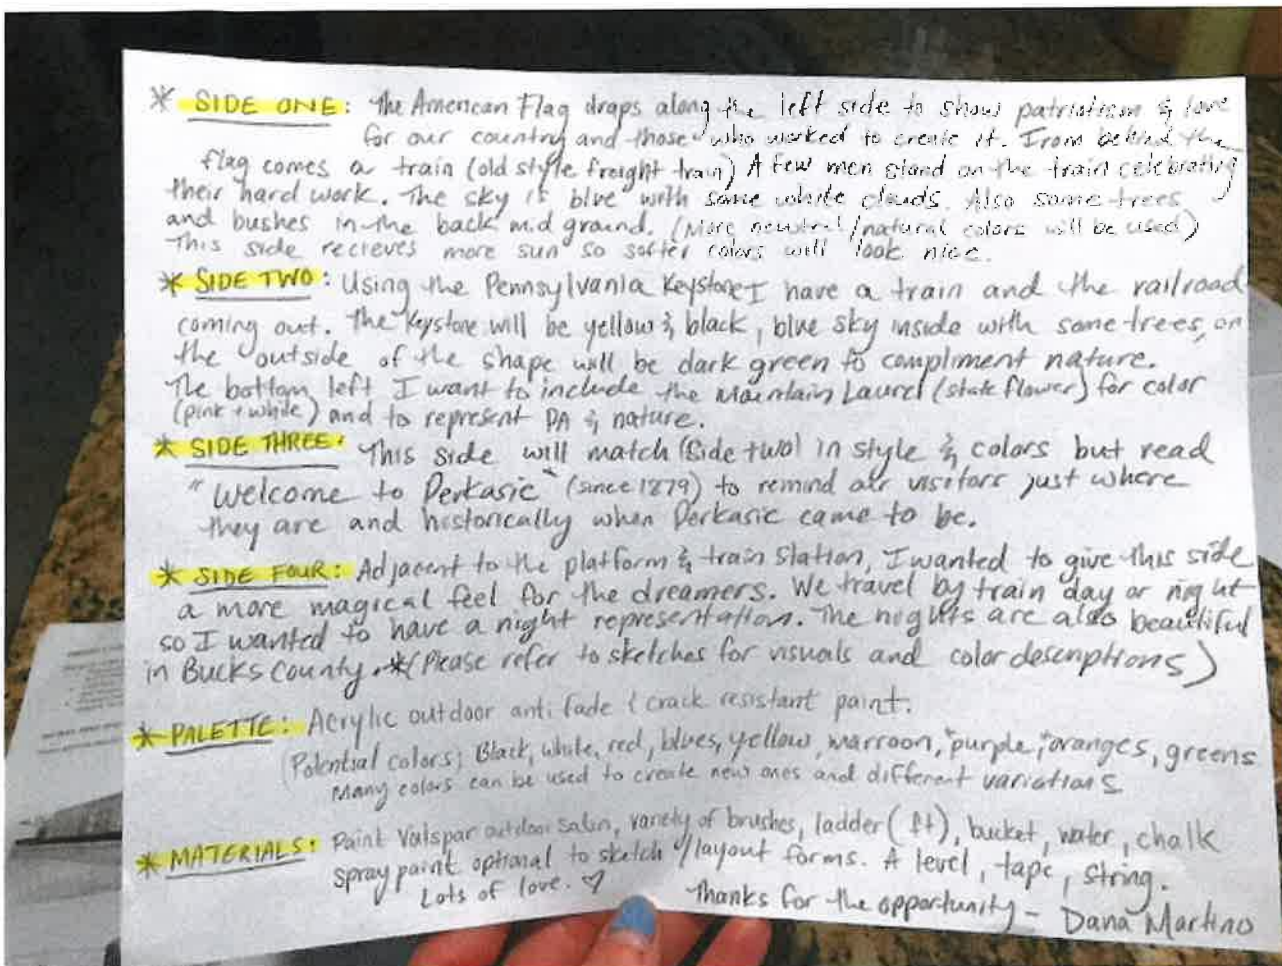 * SIDE ONE: The American Flag draps along the left side to show patriotism & love
for our country and those who worked to create it. From behind the
flag comes a train (old style freight train) A few men stand on the train celebrating
their hard work. The sky is blue with some white clouds. Also some trees
and bushes in the back mid ground. (More newtral/natural colors will be used)
This side recieves more sun so softer colors will look nice.
* SIDE TWO: Using the Pennsylvania Keystone I have a train and the railroad
coming out. The Keystone will be yellow & black, blue sky inside with some trees, on
the outside of the shape will be dark green to compliment nature.
The bottom left I want to include the Mountain Laurel (state flower) for color
(pink + white) and to represent PA & nature.
* SIDE THREE: This side will match (Side two) in style & colors but read
"Welcome to Perkasie" (since 1879) to remind all visitors just where
they are and historically when Perkasie came to be.
* SIDE FOUR: Adjacent to the platform & train station, I wanted to give this side
a more magical feel for the dreamers. We travel by train day or night
so I wanted to have a night representation. The nights are also beautiful
in Bucks County. *(Please refer to sketches for visuals and color descriptions)
* PALETTE: Acrylic outdoor anti fade & crack resistant paint.
(Potential colors; Black, white, red, blues, yellow, marroon, purple, oranges, greens
Many colors can be used to create new ones and different variations
* MATERIALS: Paint Valspar outdoor satin, variety of brushes, ladder (ft), bucket, water, chalk
spray paint optional to sketch / layout forms. A level, tape, string.
Lots of love. ♡ Thanks for the opportunity - Dana Martino